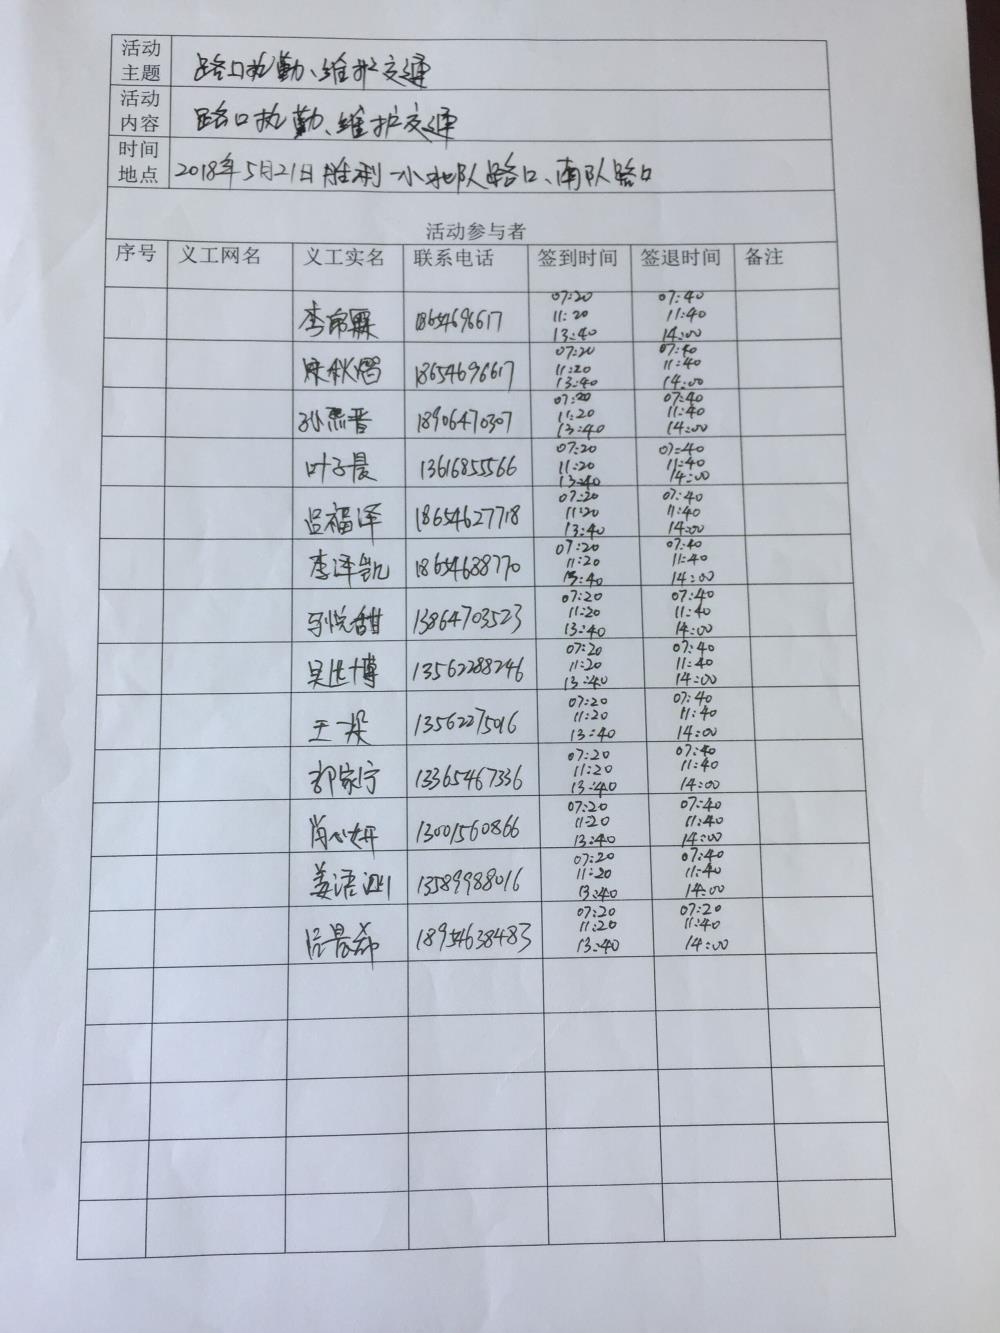 活动主题 路口执勤、维护交通
活动内容 路口执勤、维护交通
时间地点 2018年5月21日胜利一小北队路口、南队路口
活动参与者
序号 义工网名 义工实名 联系电话 签到时间 签退时间 备注
07:20 07:40
李帛霖 18654696617 11:20 11:40
13:40 14:00
07:20 07:40
18654696617 11:20 11:40
13:40 14:00
07:20 07:40
孙思晋 18906470307 11:20 11:40
13:40 14:00
07:20 07:40
叶子晨 13616855566 11:20 11:40
13:40 14:00
07:20 07:40
吕福泽 18654627718 11:20 11:40
13:40 14:00
07:20 07:40
李泽凯 18654688770 11:20 11:40
13:40 14:00
07:20 07:40
马悦甜 13864703523 11:20 11:40
13:40 14:00
07:20 07:40
吴迅博 13562288246 11:20 11:40
13:40 14:00
07:20 07:40
王一 13562275016 11:20 11:40
13:40 14:00
07:20 07:40
郭家宁 13365467336 11:20 11:40
13:40 14:00
07:20 07:40
肖心妍 13001560866 11:20 11:40
13:40 14:00
07:20 07:40
姜语 13589988016 11:20 11:40
13:40 14:00
07:20 07:20
吕晨希 18954638483 11:20 11:40
13:40 14:00